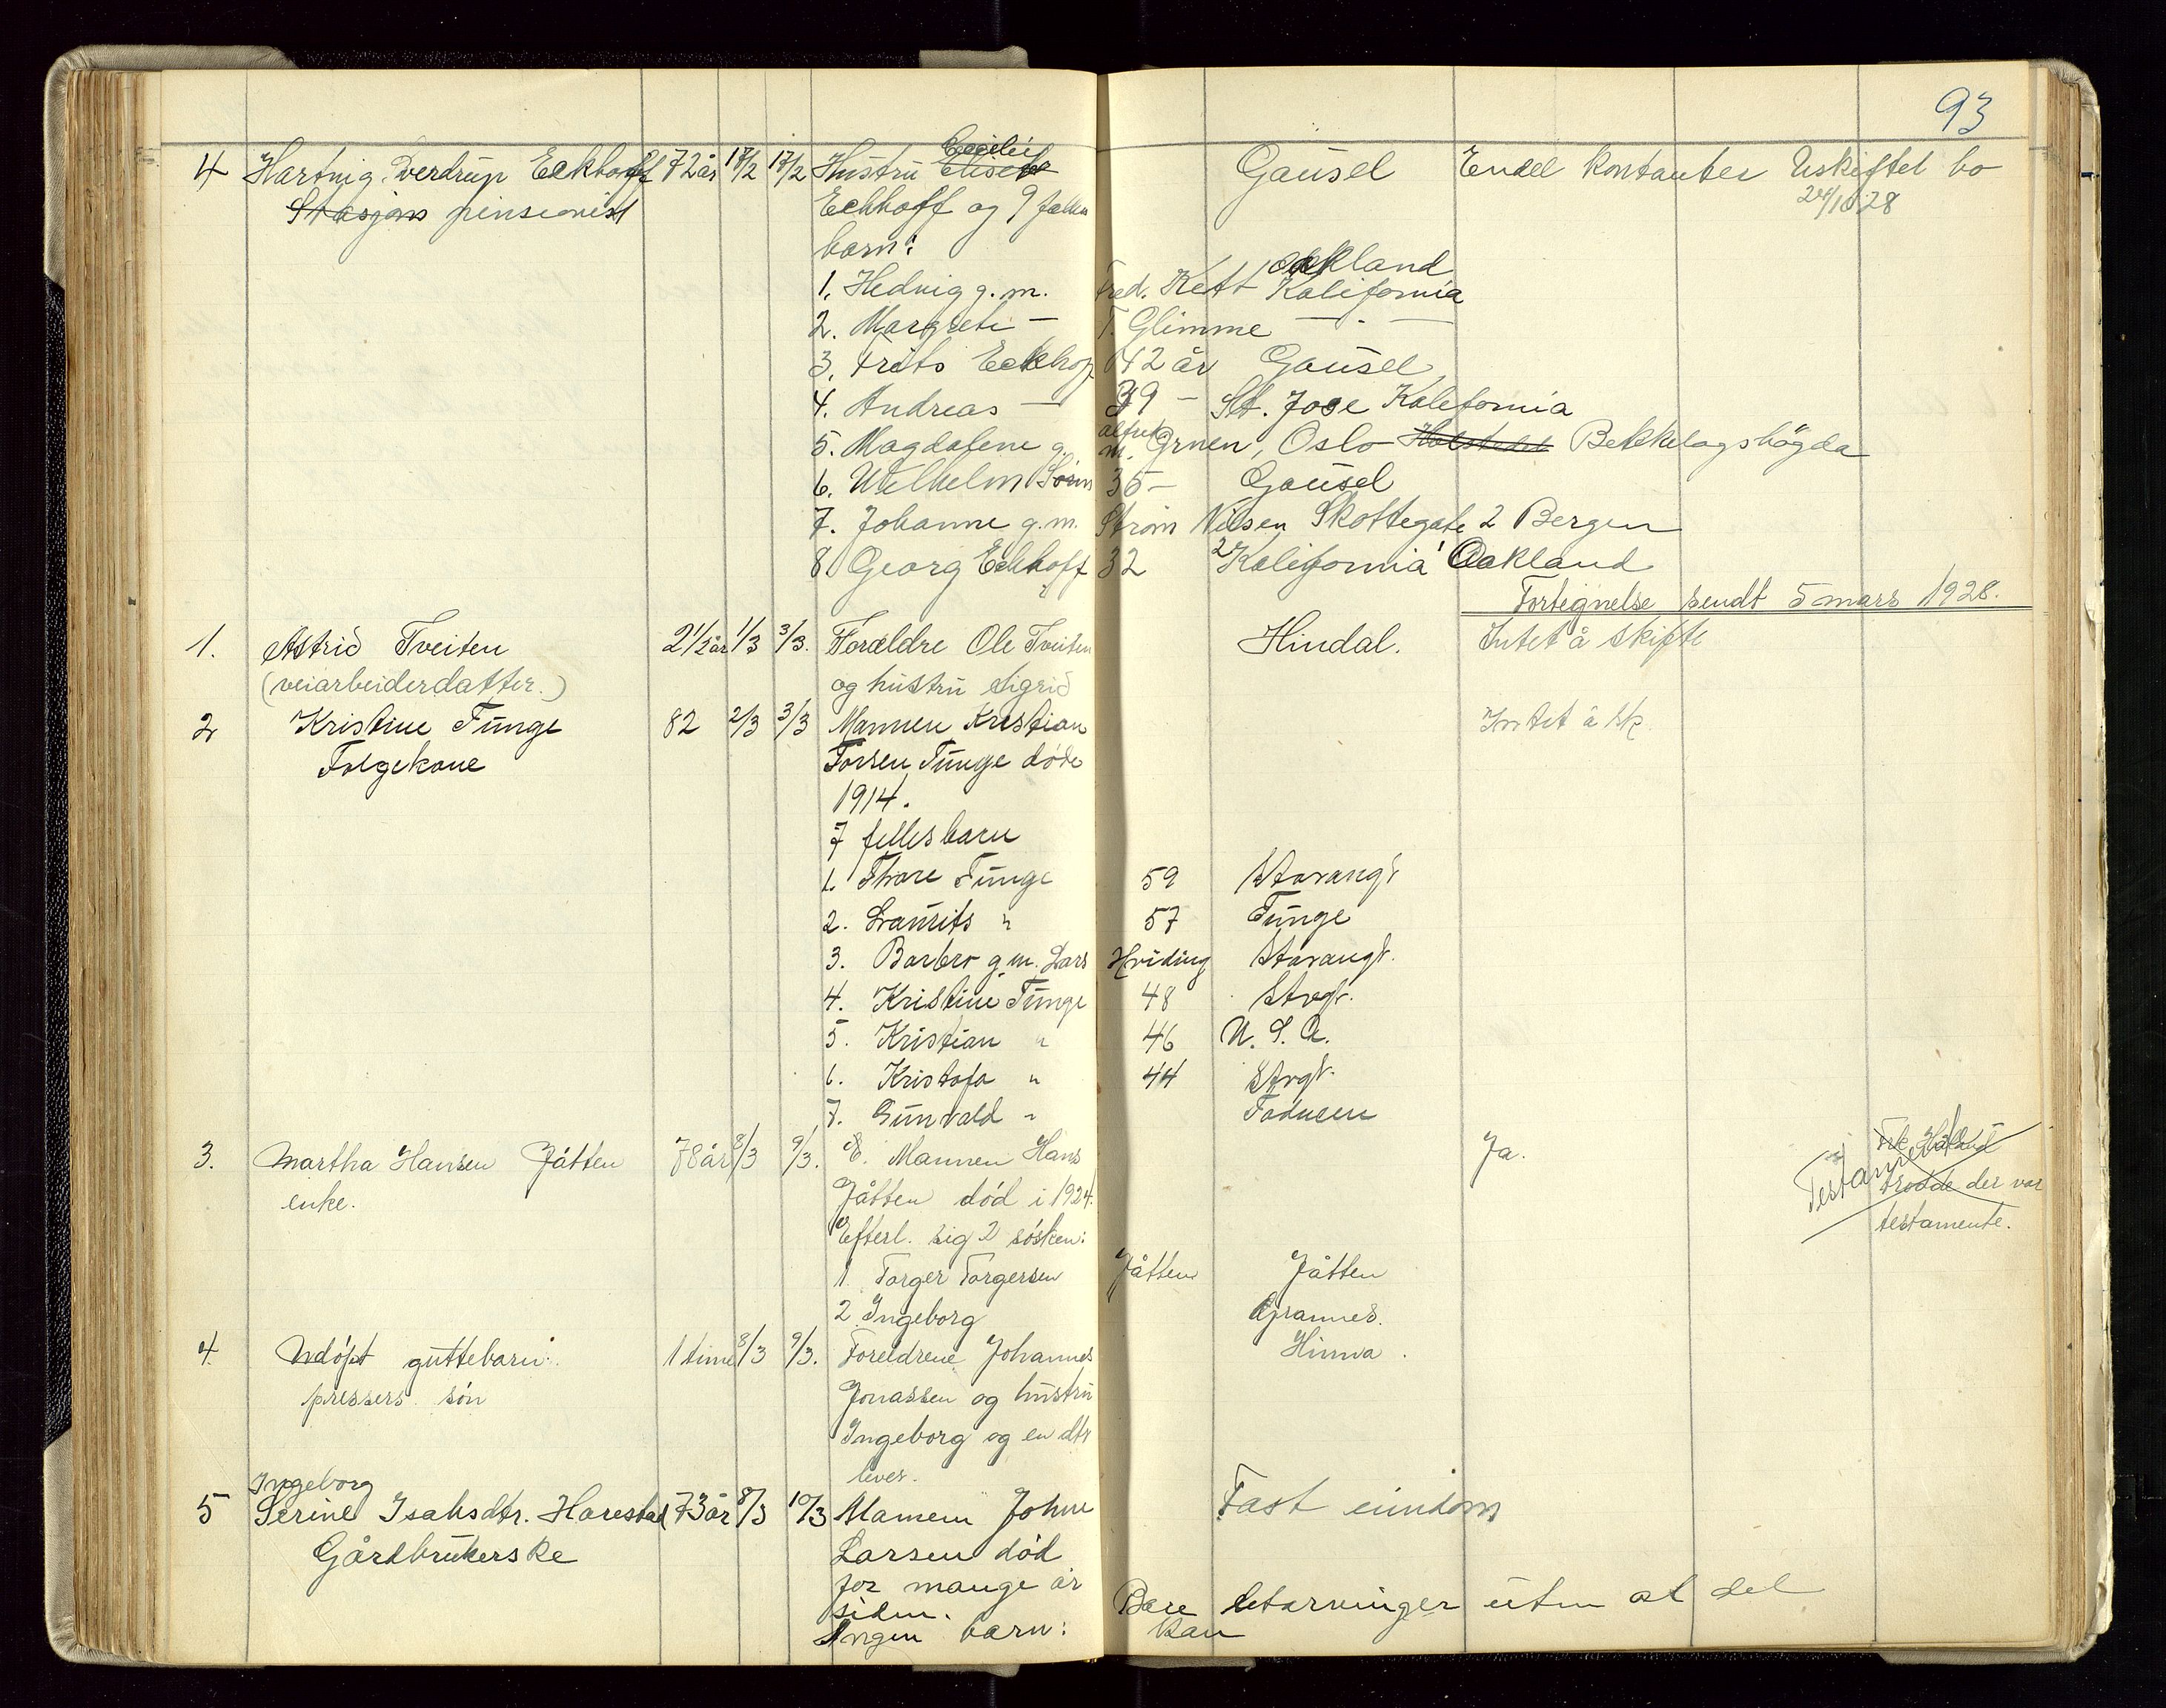 93
4 Hartvig Sverdrup Eckhoff 72 år 17/2 17/2 Hustru Elisebe Cecilie Gausel Endel kontanter Uskiftet bo
Stasjons pensionist Eckhoff og 9 felles 24/10 28
barn:
Oakland
1. Hedvig g.m. Fred. Kett Kalifornia
2. Margrete — T. Glimme — " —
3. Frits Eckhoff 42 år Gausel
4. Andreas — 39 — St. Jose Kalifornia
5. Magdalene g. m. Alfred Gruen, Oslo Bekkelagshögda
6. Wilhelm 35 — Gausel
7. Johanne g.m. Strøm Nilsen Skottegate 2 Bergen
8 Georg Eckhoff 32 Kalifornia Oakland
Fortegnelse sendt 5 mars 1928.
1. Astrid Tveiten 2 1/2 år 1/3 3/3. Forældre Ole Tveiten Hindal. Intet å skifte
(veiarbeiderdatter.) og hustru Sigrid
2 Kristine Tunge 82 2/3 3/3 Mannen Kristian Intet å sk.
Folgekone Torsen Tunge döde
1914.
7 fellesbarn
1. Thore Tunge 59 Stavangr
2. Laurits " 57 Tunge
3. Barbro g.m. Lars Hviding Stavangr.
4. Kristine Tunge 48 Stvgr.
5. Kristian " 46 U.S.A.
6. Kristofa " 44 Stvgr.
7. Gunvald "
3. Martha Hansen Jåtten 78 år 8/3 9/3. E. Mannen Hans Ja. Testamente Frk. Håland
enke. Jåtten död i 1924. trodde der var
Efterl. sig 2 sösken: testamente.
1 Torger Torgersen Jåtten Jåtten
2. Ingeborg Grannes.
4. Udöpt guttebarn. 1 time 8/3 9/3. Foreldrene Johannes Hinna.
pressers sön Jonassen og hustru
Ingeborg og en dtr
lever.
Ingeborg
5 Serine Isaksdtr. Harestad 73 år 8/3 10/3 Mannen John Fast eiendom
Gårdbrukerske Larsen död
for mange år
siden. Bare utarvinger uten at det
Ingen barn: kan